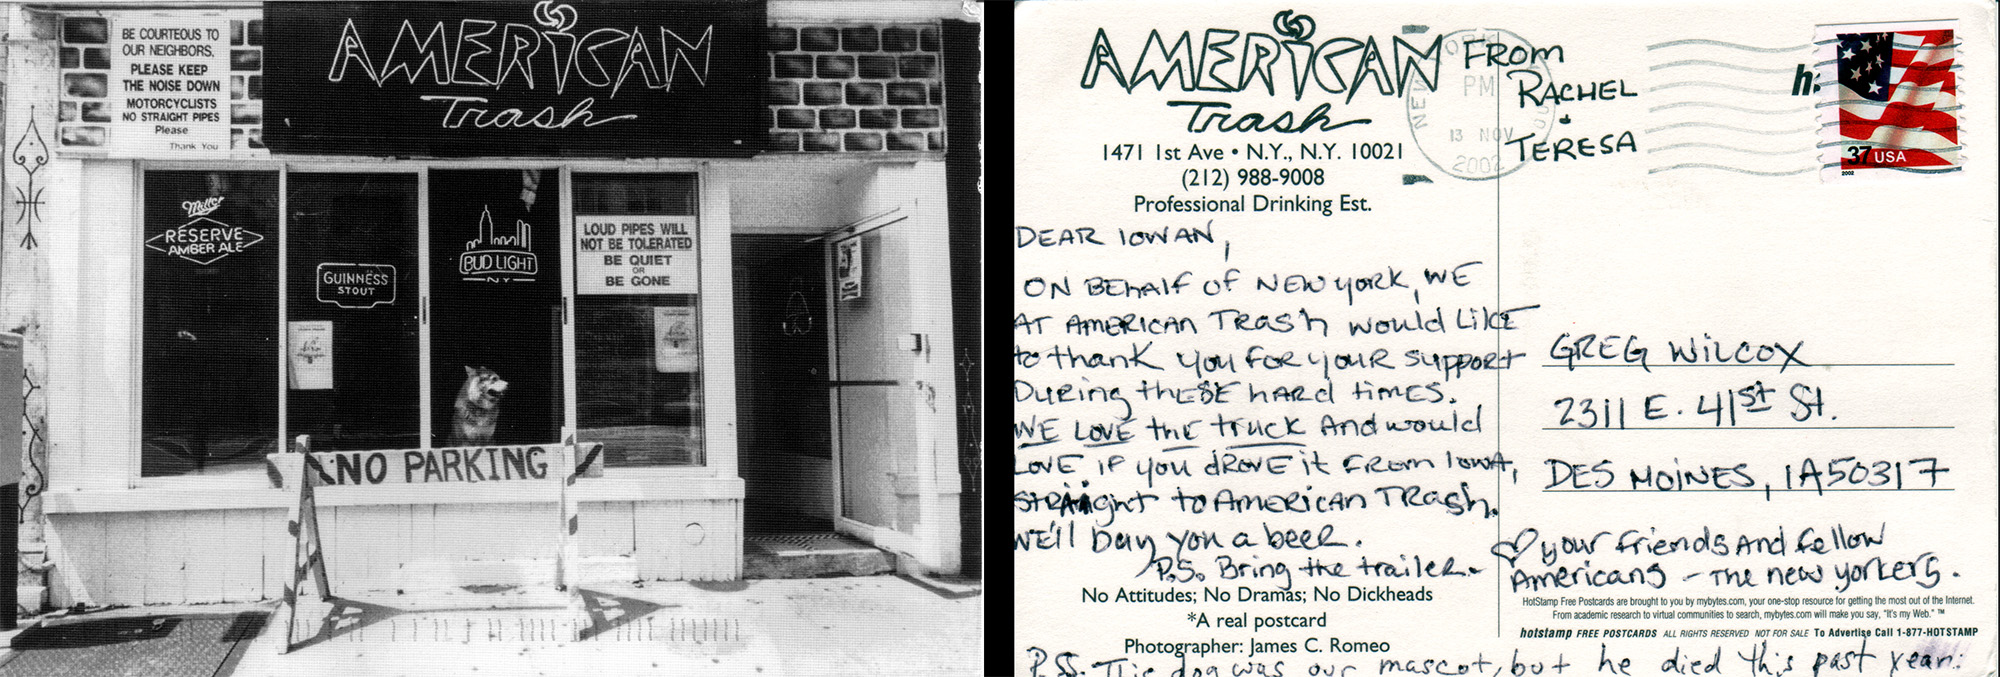 BE COURTEOUS TO
OUR NEIGHBORS,
PLEASE KEEP
THE NOISE DOWN
MOTORCYCLISTS
NO STRAIGHT PIPES
Please
Thank You
AMERICAN
Trash
Miller
RESERVE
AMBER ALE
GUINNESS
STOUT
BUD LIGHT
NY
LOUD PIPES WILL
NOT BE TOLERATED
BE QUIET
OR
BE GONE
NO PARKING
AMERICAN
Trash
1471 1st Ave • N.Y., N.Y. 10021
(212) 988-9008
Professional Drinking Est.
DEAR IOWAN,
ON BEHAlf OF NEW YORK, WE
AT AMERICAN TRASH would LIKE
to thank you FOR your support
During thESE hARd timES.
WE LOVE thE truck And would
LOVE iF you dROVE it FROM IOWA,
STRAight to AMERICAN TRAsh.
WE'll buy you a beer.
P.S. Bring the trailer.
No Attitudes; No Dramas; No Dickheads
*A real postcard
Photographer: James C. Romeo
P.SS. The dog was our mascot, but he died this past year.
FROM
RACHEL
&
TERESA
NEW YORK
PM
13 NOV
2002
h
37 USA
2002
GREG WILCOX
2311 E. 41st St.
DES MOINES, IA 50317
♡ your friends And fellow
Americans - The new yorkers.
HotStamp Free Postcards are brought to you by mybytes.com, your one-stop resource for getting the most out of the Internet.
From academic research to virtual communities to search, mybytes.com will make you say, "It's my Web." ™
hotstamp FREE POSTCARDS ALL RIGHTS RESERVED NOT FOR SALE To Advertise Call 1-877-HOTSTAMP